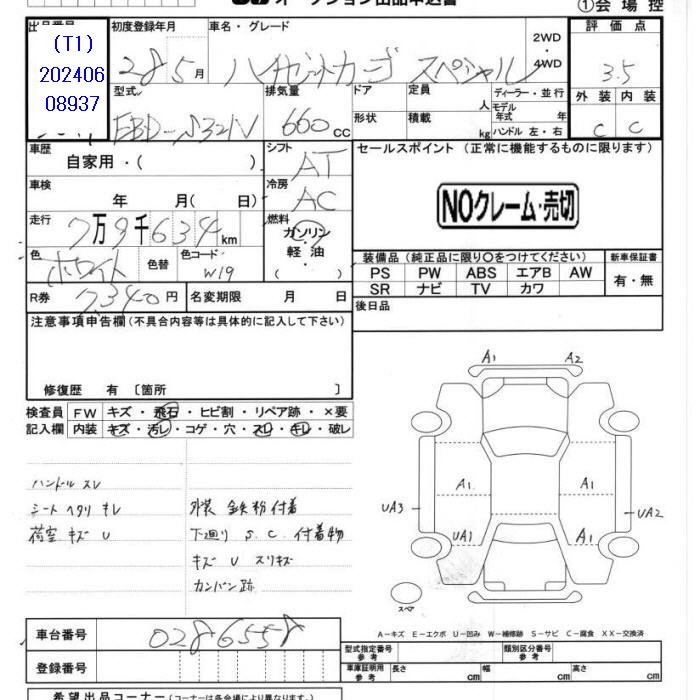 オークション出品申込書
①会場控
出品番号
初度登録年月
車名・グレード
評価点
(T1)
202406
08937
28 5月
ハイゼットカーゴ スペシャル
2WD
・
4WD
3.5
型式
排気量
ドア
定員
ディーラー・並行
外装
内装
人
モデル年式 年
EBD-S321V
660CC
形状
積載
kg
ハンドル 左・右
C
C
車歴
自家用・( )
シフト
AT
セールスポイント (正常に機能するものに限ります)
車検
年 月( 日)
冷房
AC
NOクレーム・売切
走行
7万9千634km
燃料
ガソリン
・
軽油
( )
色
ホワイト
色替
色コード
W19
装備品 (純正品に限り○をつけてください)
新車保証書
PS PW ABS エアB AW
有・無
SR ナビ TV カワ
R券
7,340円
名変期限 月 日
後日品
注意事項申告欄 (不具合内容等は具体的に記入して下さい)
修復歴 有 〔箇所 〕
検査員
記入欄
FW キズ・飛石・ヒビ割・リペア跡・×要
内装 キズ・汚レ・コゲ・穴・スレ・キレ・破レ
ハンドル スレ
シート ヘタリ キレ
荷室 キズ U
外装 鉄粉付着
下廻り S.C.付着物
キズ U スリキズ
カンバン跡
A1
A2
A1
A1
UA3
UA2
UA1
A1
スペア
A-キズ E-エクボ U-凹み W-補修跡 S-サビ C-腐食 XX-交換済
車台番号
0286558
登録番号
型式指定番号
参考
類別区分番号
参考
車庫証明用
参考
長さ cm
幅 cm
高さ cm
希望出品コーナー (コーナーは各会場により異なります。)